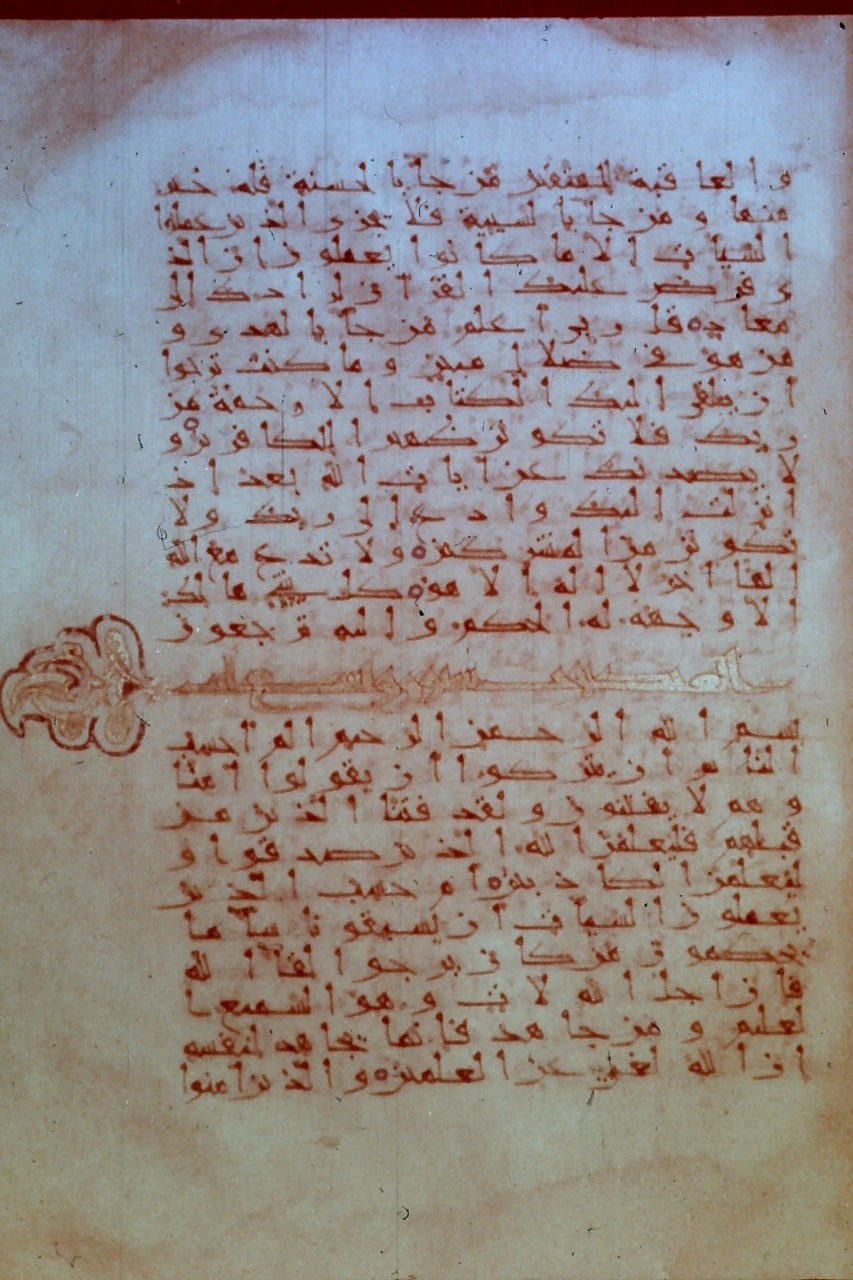 و ا لعا قبة للمتقين من جا با لحسنة فله خير
منها و من جا با لسيية فلا يجزى ا لذ ين عملوا
ا لسيا ت ا لا ما كا نوا يعملو ن ا ن ا لذ
ى فر ض عليك ا لقر ا ن لر ا د ك ا لى
معا د قل ر بى ا علم من جا با لهد ى و
من هو فى ضلا ل مبين و ما كنت تر جوا
ا ن يلقى ا ليك ا لكتا ب ا لا ر حمة من
ر بك فلا تكو نن ظهير ا للكا فر ين و
لا يصد نك عن ا يا ت ا لله بعد ا ذ
ا نز لت ا ليك و ا د ع ا لى ر بك و لا
تكو نن من ا لمشر كين و لا تد ع مع ا لله
ا لها ا خر لا ا له ا لا هو كل شى ها لك
ا لا و جهه له ا لحكم و ا ليه تر جعو ن
بسم ا لله ا لر حمن ا لر حيم ا لم ا حسب
ا لنا س ا ن يتر كو ا ا ن يقو لوا ا منا
و هم لا يفتنو ن و لقد فتنا ا لذ ين من
قبلهم فليعلمن ا لله ا لذ ين صد قو ا و
ليعلمن ا لكا ذ بين ا م حسب ا لذ ين
يعملو ن ا لسيا ت ا ن يسبقو نا سا ما
يحكمو ن من كا ن ير جو ا لقا ا لله
فا ن ا جل ا لله لا ت و هو ا لسميع ا
لعليم و من جا هد فا نما يجا هد لنفسه
ا ن ا لله لغنى عن ا لعلمين و ا لذ ين ا منوا